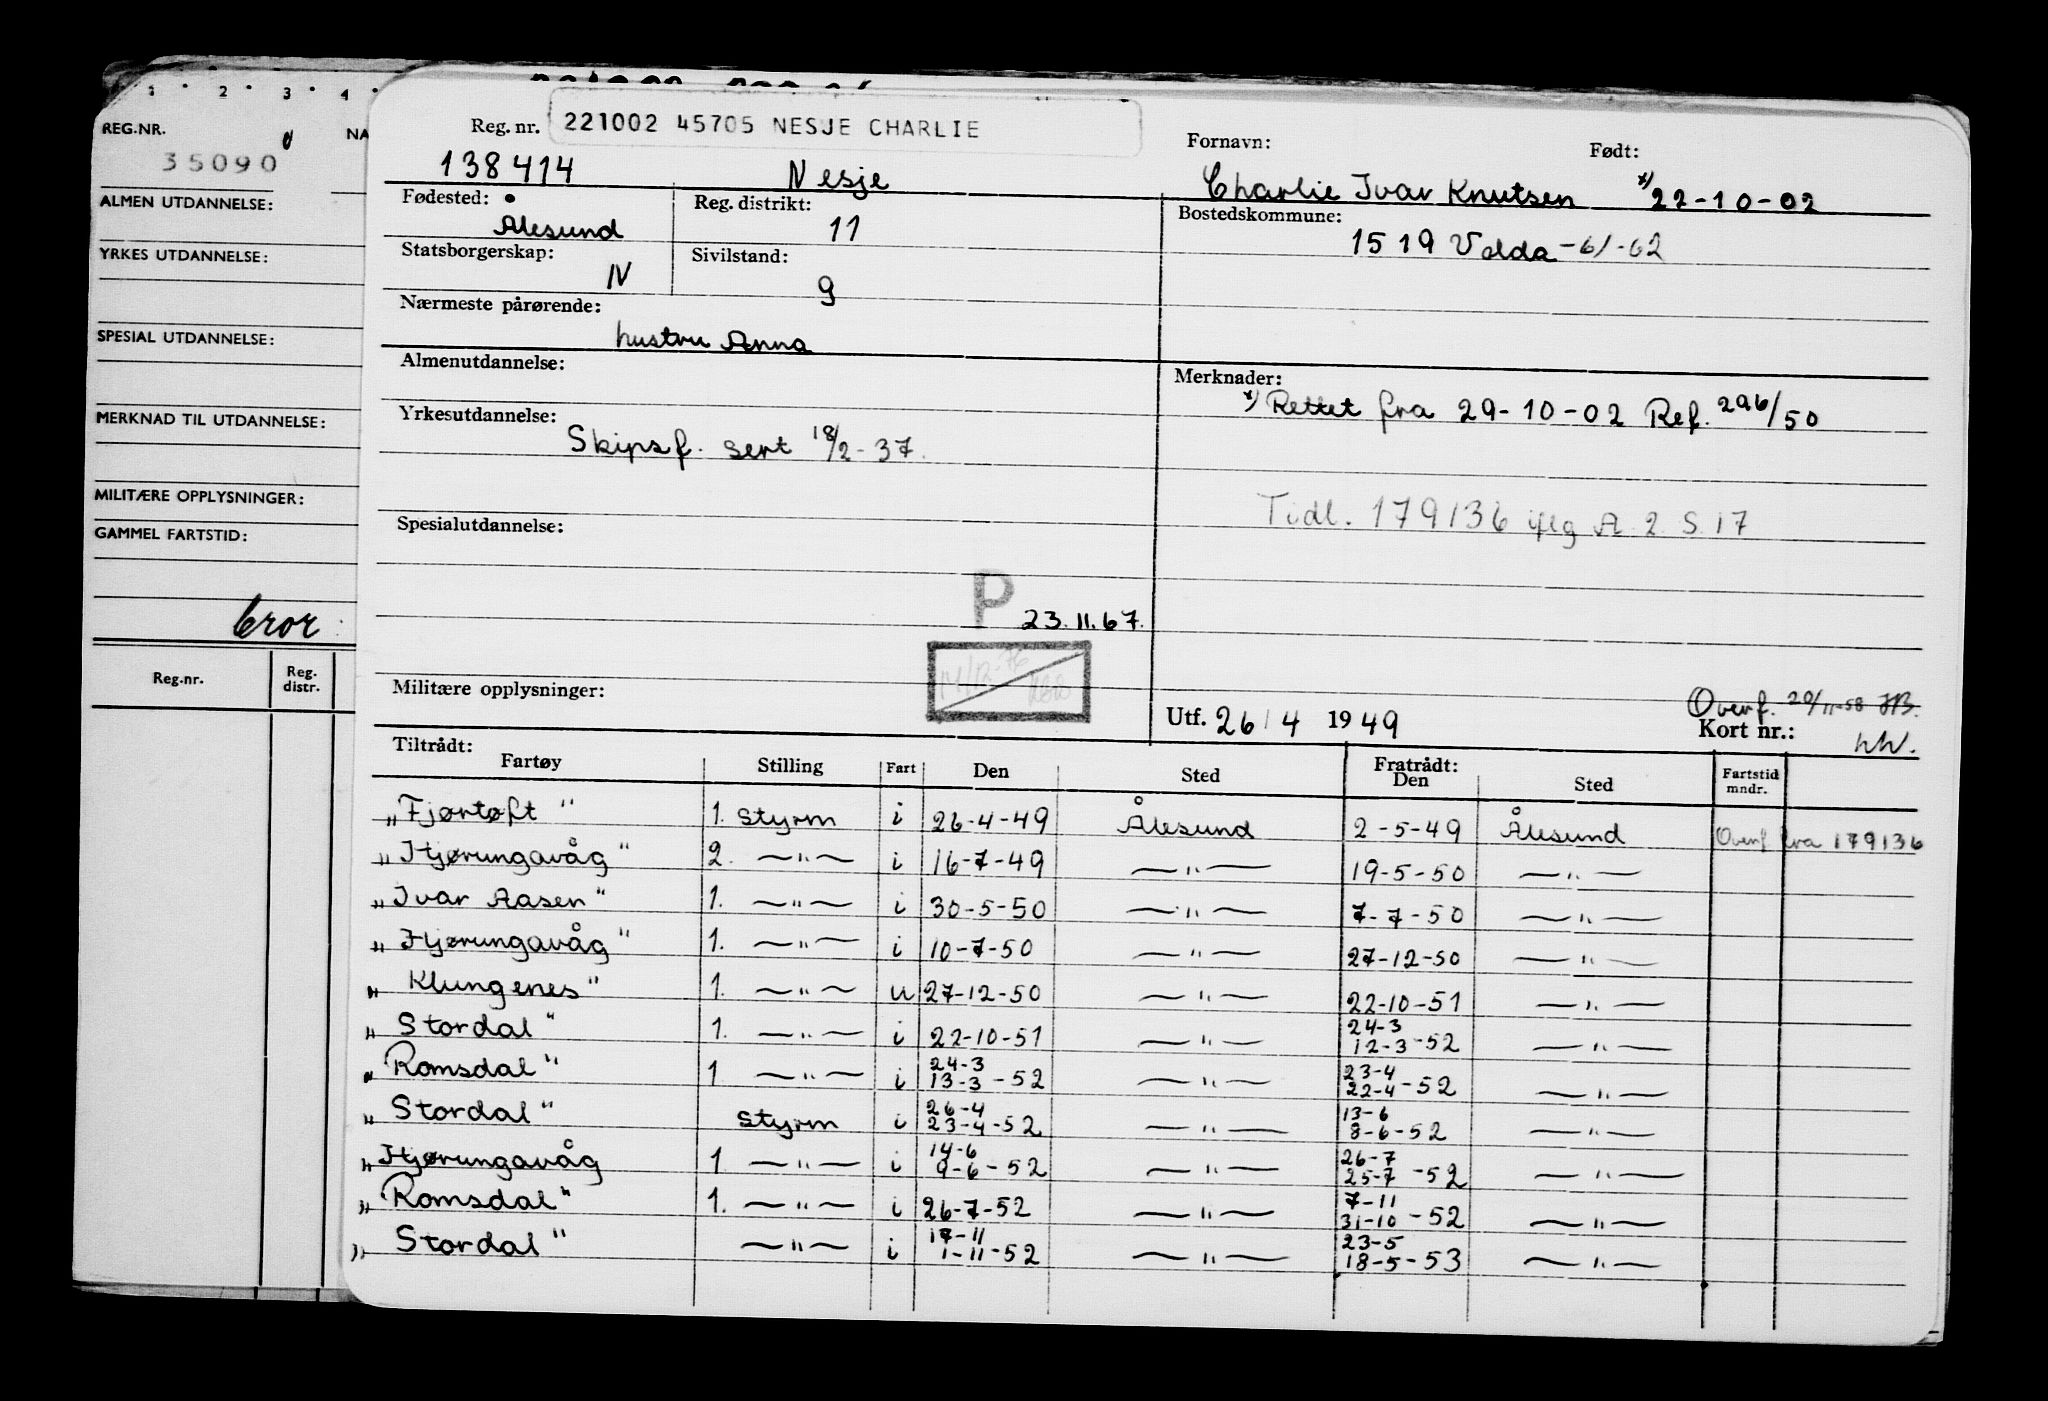 1 2 3 4
REG.NR. NA
35090
ALMEN UTDANNELSE:
YRKES UTDANNELSE:
SPESIAL UTDANNELSE:
MERKNAD TIL UTDANNELSE:
MILITÆRE OPPLYSNINGER:
GAMMEL FARTSTID:
Reg.nr. Reg. distr.
Reg. nr. 221002 45705 NESJE CHARLIE Fornavn: Født:
138414 Nesje Charlie Ivar Knutsen x) 22-10-02
Fødested: Reg. distrikt: Bostedskommune:
Ålesund 11 1519 Volda -61-62
Statsborgerskap: Sivilstand:
N g
Nærmeste pårørende:
hustru Anna
Almenutdannelse: Merknader:
x) Rettet fra 29-10-02 Ref. 296/50
Yrkesutdannelse:
Skipsf. sert 18/2-37.
Tidl. 179136 iflg A.2 S.17
Spesialutdannelse:
P 23.11.67.
Militære opplysninger: Overf. 20/11-58
Utf. 26/4 1949 Kort nr.:
Tiltrådt: Fratrådt:
Fartøy Stilling Fart Den Sted Den Sted Fartstid mndr.
„Fjørtoft" 1. styrm i 26-4-49 Ålesund 2-5-49 Ålesund Overf fra 179136
„Hjørungavåg" 2. —"— i 16-7-49 —"— 19-5-50 —"—
„Ivar Aasen" 1. —"— i 30-5-50 —"— 7-7-50 —"—
„Hjørungavåg" 1. —"— i 10-7-50 —"— 27-12-50 —"—
„Klungenes" 1. —"— u 27-12-50 —"— 22-10-51 —"—
„Stordal" 1. —"— i 22-10-51 —"— 24-3 12-3-52 —"—
„Romsdal" 1 —"— i 24-3 13-3-52 —"— 23-4 22-4-52 —"—
„Stordal" styrm i 26-4 23-4-52 —"— 13-6 8-6-52 —"—
„Hjørungavåg 1 —"— i 14-6 9-6-52 —"— 26-7 25-7-52 —"—
„Romsdal" 1. —"— i 26-7-52 —"— 7-11 31-10-52 —"—
„Stordal" —"— i 17-11 1-11-52 —"— 23-5 18-5-53 —"—